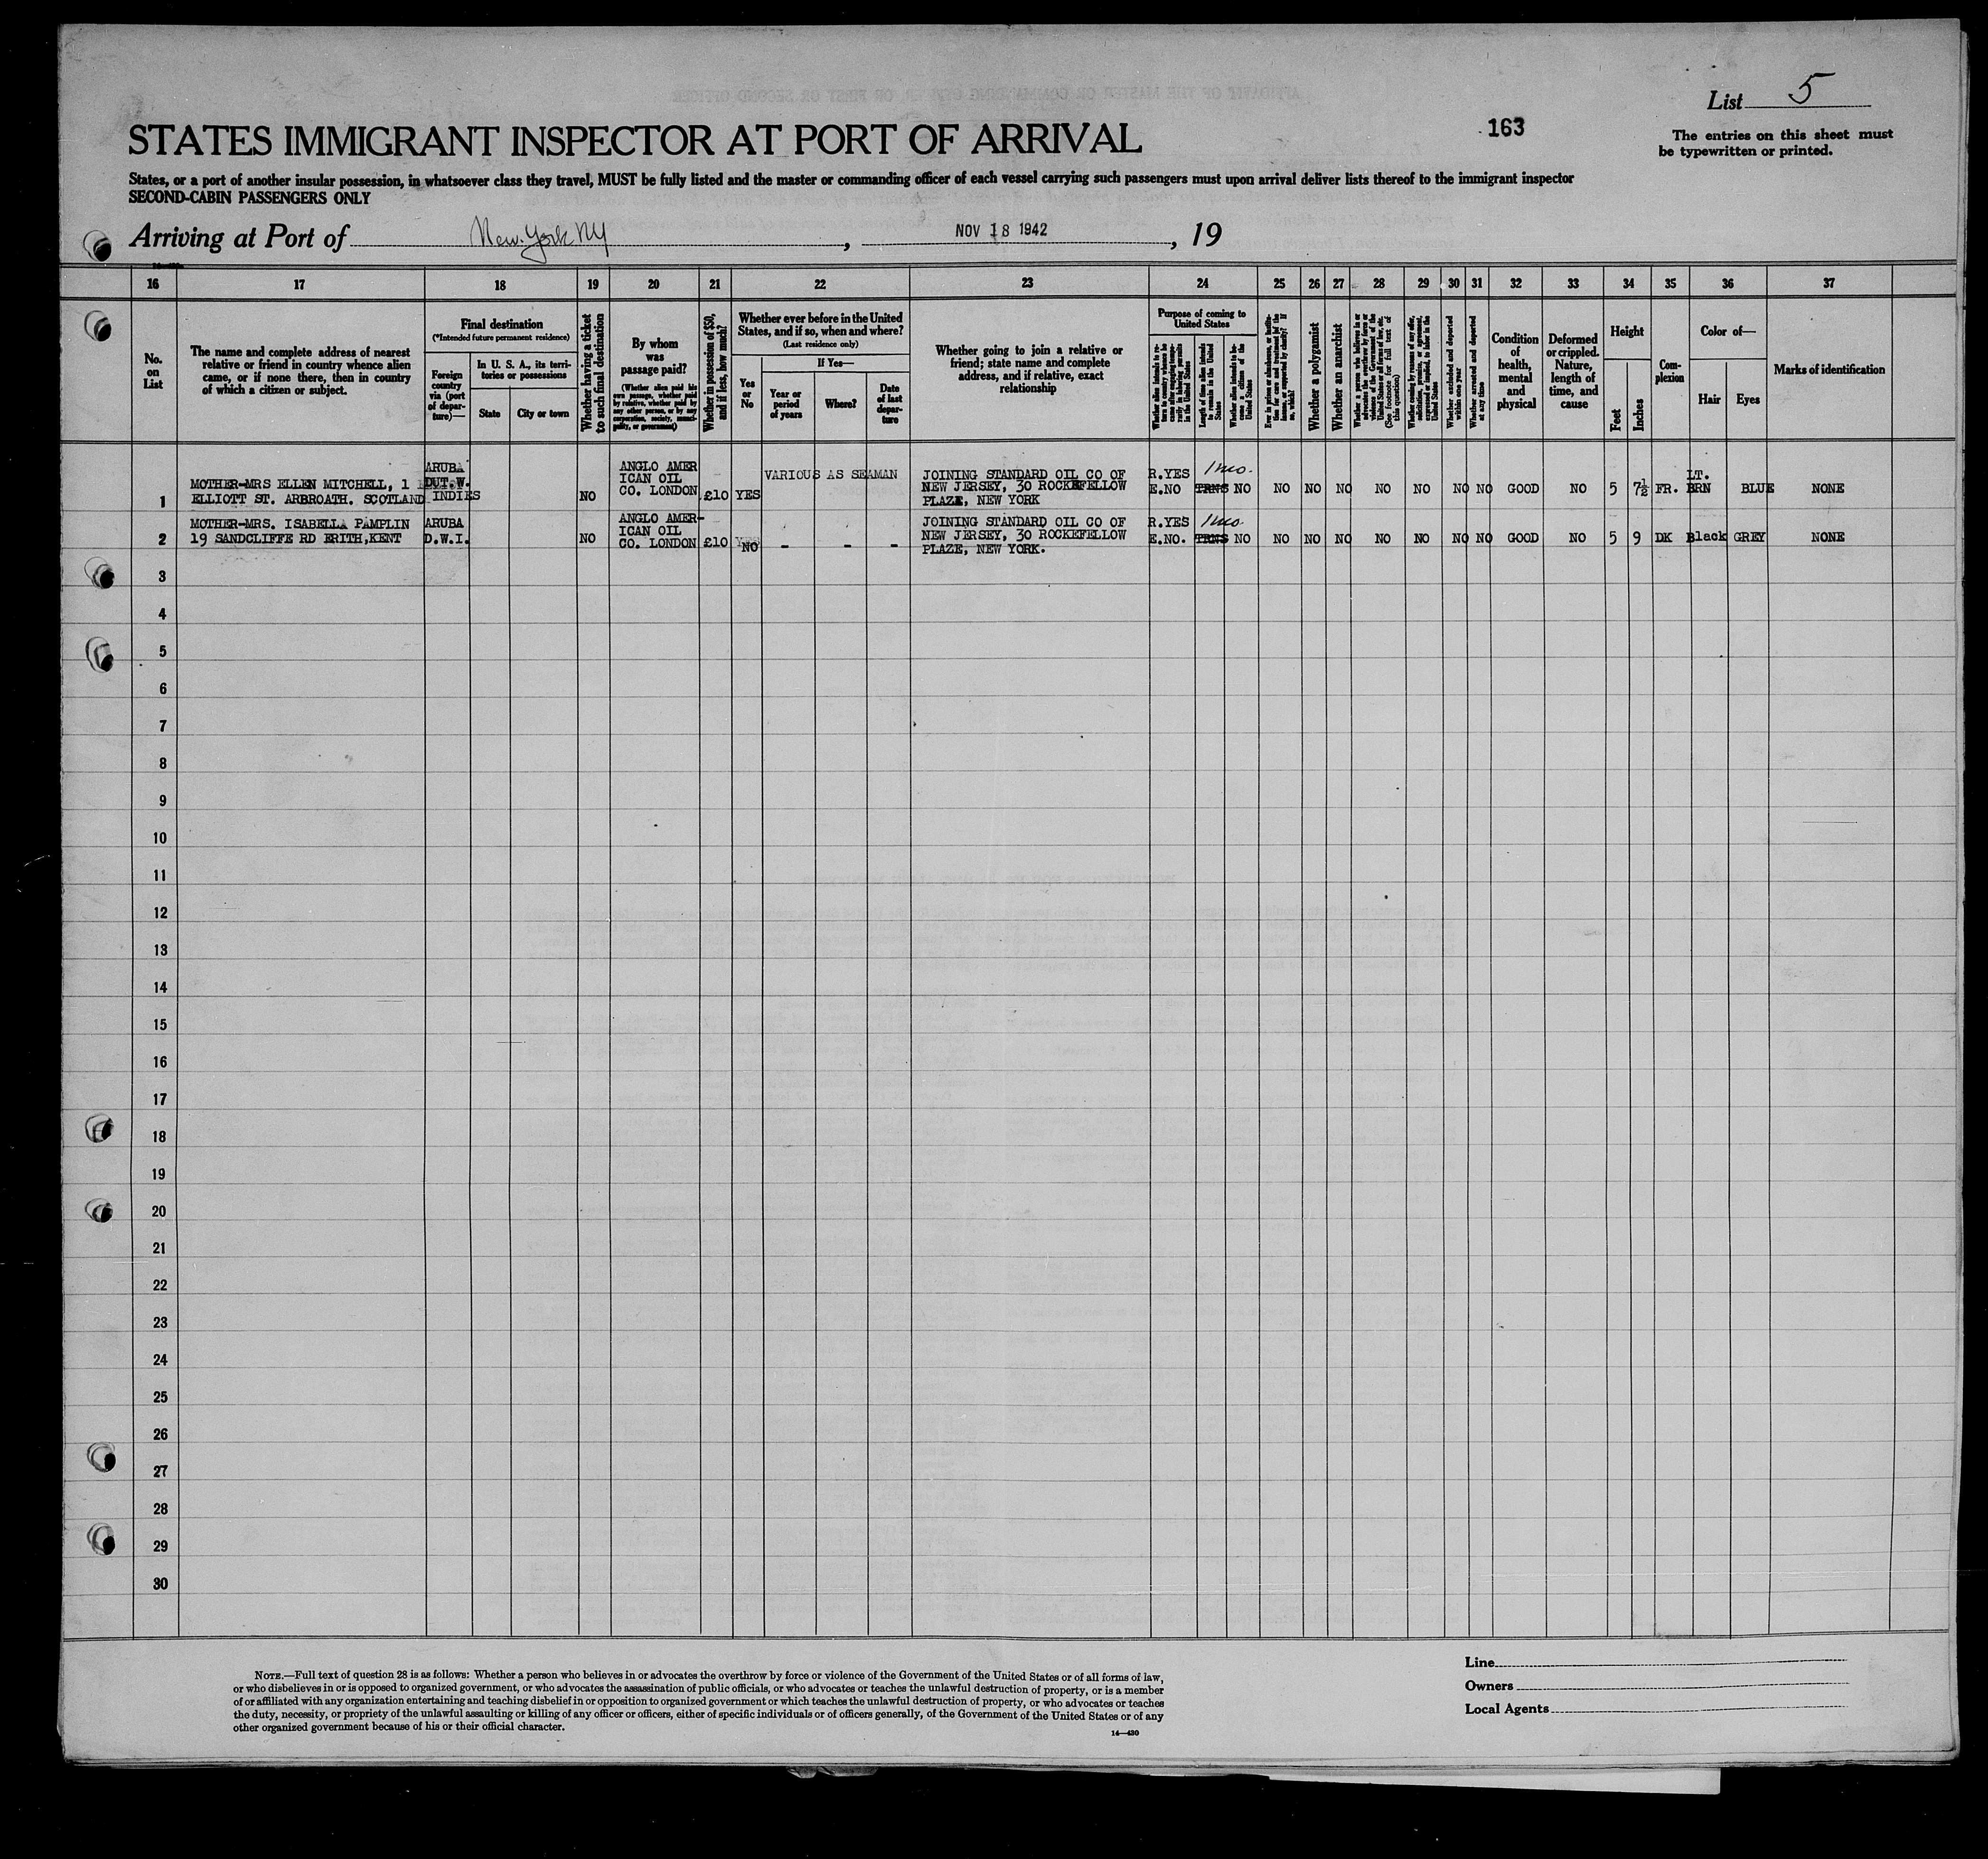 List 5
163
The entries on this sheet must
be typewritten or printed.
STATES IMMIGRANT INSPECTOR AT PORT OF ARRIVAL
States, or a port of another insular possession, in whatsoever class they travel, MUST be fully listed and the master or commanding officer of each vessel carrying such passengers must upon arrival deliver lists thereof to the immigrant inspector
SECOND-CABIN PASSENGERS ONLY
Arriving at Port of New York NY, NOV 18 1942, 19
16 17 18 19 20 21 22 23 24 25 26 27 28 29 30 31 32 33 34 35 36 37
No.
on
List
The name and complete address of nearest
relative or friend in country whence alien
came, or if none there, then in country
of which a citizen or subject.
Final destination
(*Intended future permanent residence)
Foreign
country
via (port
of depar-
ture)—
In U. S. A., its terri-
tories or possessions
State
City or town
Whether having a ticket
to such final destination
By whom
was
passage paid?
(Whether alien paid his
own passage, whether paid
by relative, whether paid by
any other person, or by any
corporation, society, munici-
pality, or government)
Whether in possession of $50,
and if less, how much?
Whether ever before in the United
States, and if so, when and where?
(Last residence only)
Yes
or
No
If Yes—
Year or
period
of years
Where?
Date
of last
depar-
ture
Whether going to join a relative or
friend; state name and complete
address, and if relative, exact
relationship
Purpose of coming to
United States
Whether alien intends to re-
turn to country whence he
came after engaging tempo-
rarily in laboring pursuits
in the United States
Length of time alien intends
to remain in the United
States
Whether alien intends to be-
come a citizen of the
United States
Whether a polygamist
Whether an anarchist
Whether a person who believes in or
advocates the overthrow by force or
violence of the Government of the
United States or all forms of law, etc.
(See footnote for full text of
this question)
Whether coming by reasons of any offer,
solicitation, promise, or agreement,
expressed or implied, to labor in the
United States
Whether excluded and deported
within one year
Whether arrested and deported
at any time
Condition
of
health,
mental
and
physical
Deformed
or crippled.
Nature,
length of
time, and
cause
Height
Feet
Inches
Com-
plexion
Color of—
Hair
Eyes
Marks of identification
1
MOTHER-MRS ELLEN MITCHELL, 1
ELLIOTT ST. ARBROATH. SCOTLAND
ARUBA
DUT.W.
INDIES
NO
ANGLO AMER
ICAN OIL
CO. LONDON
£10
YES
VARIOUS AS SEAMAN
JOINING STANDARD OIL CO OF
NEW JERSEY, 30 ROCKEFELLOW
PLAZE, NEW YORK
R.YES
E.NO
1 mo.
TRNS NO NO NO NO NO NO NO NO GOOD NO 5 7½ FR.
LT.
BRN
BLUE NONE
2
MOTHER-MRS. ISABELLA PAMPLIN
19 SANDCLIFFE RD ERITH,KENT
ARUBA
D.W.I.
NO
ANGLO AMER-
ICAN OIL
CO. LONDON
£10
YES
NO
- - -
JOINING STANDARD OIL CO OF
NEW JERSEY, 30 ROCKEFELLOW
PLAZE, NEW YORK.
R.YES
E.NO.
1 mo.
TRNS NO NO NO NO NO NO NO NO GOOD NO 5 9 DK Black GREY NONE
3
4
5
6
7
8
9
10
11
12
13
14
15
16
17
18
19
20
21
22
23
24
25
26
27
28
29
30
NOTE.—Full text of question 28 is as follows: Whether a person who believes in or advocates the overthrow by force or violence of the Government of the United States or of all forms of law,
or who disbelieves in or is opposed to organized government, or who advocates the assassination of public officials, or who advocates or teaches the unlawful destruction of property, or is a member
of or affiliated with any organization entertaining and teaching disbelief in or opposition to organized government or which teaches the unlawful destruction of property, or who advocates or teaches
the duty, necessity, or propriety of the unlawful assaulting or killing of any officer or officers, either of specific individuals or of officers generally, of the Government of the United States or of any
other organized government because of his or their official character.
14—430
Line
Owners
Local Agents